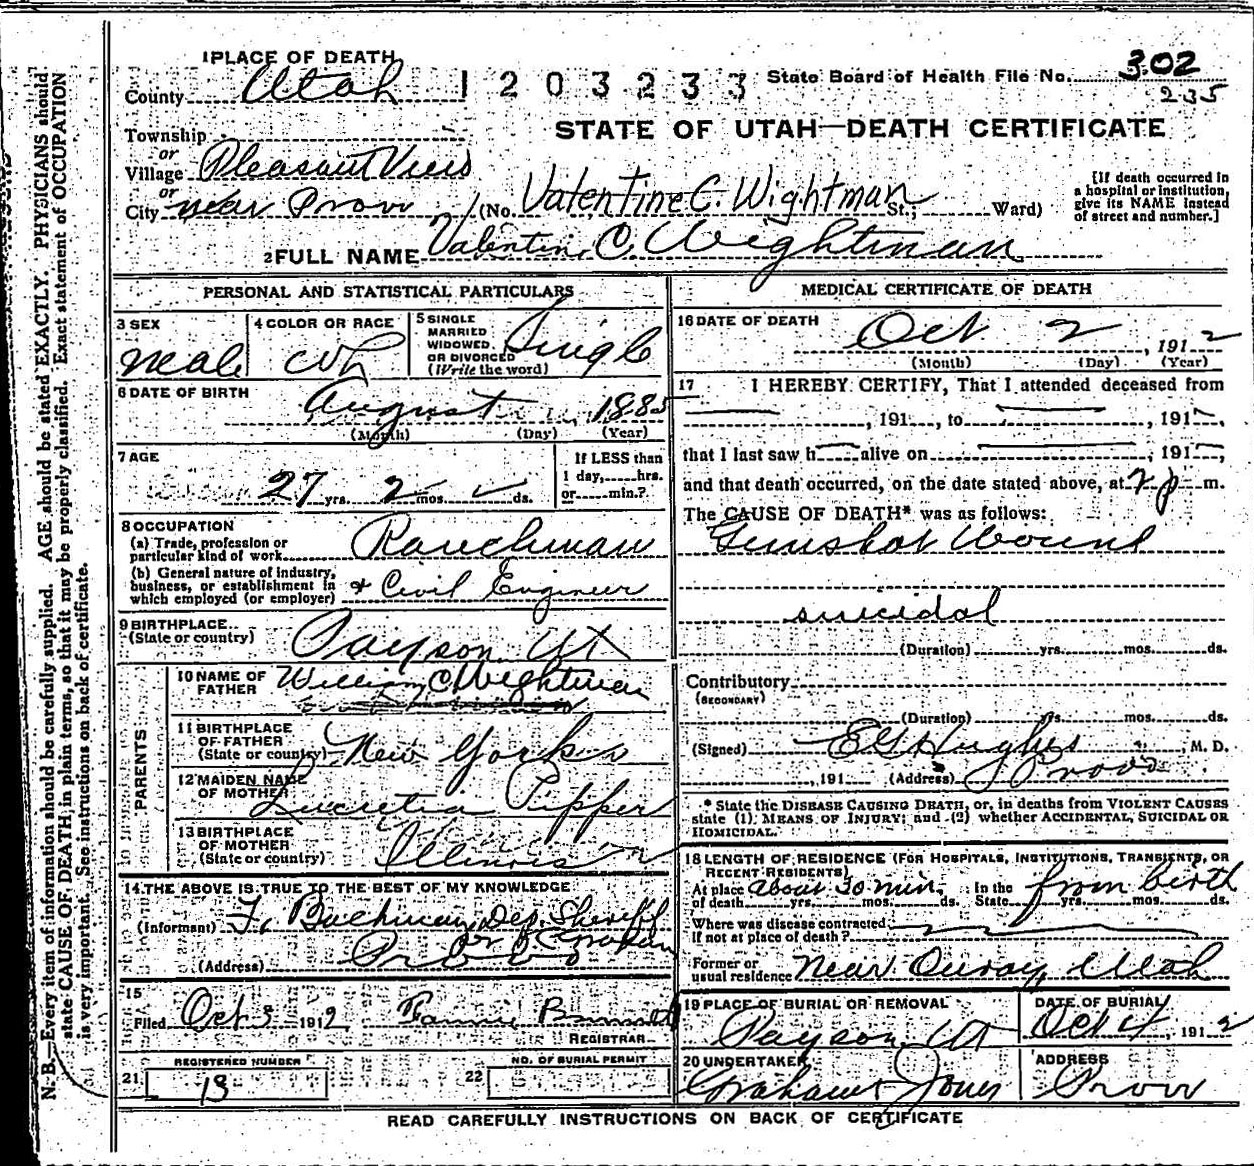 1 PLACE OF DEATH
County Utah 1203233 State Board of Health File No. 302
235
Township
STATE OF UTAH—DEATH CERTIFICATE
or
Village Pleasant View
or
City near Provo (No. Valentine C. Wightman St.; Ward)
[If death occurred in a hospital or institution, give its NAME instead of street and number.]
2 FULL NAME Valentine C. Wightman
PERSONAL AND STATISTICAL PARTICULARS
3 SEX Male
4 COLOR OR RACE Wh
5 SINGLE MARRIED WIDOWED, OR DIVORCED (Write the word) Single
6 DATE OF BIRTH August 1885
(Month) (Day) (Year)
7 AGE 27 yrs. 2 mos. ds.
If LESS than 1 day, hrs. or min.?
8 OCCUPATION
(a) Trade, profession or particular kind of work Ranchman
(b) General nature of industry, business, or establishment in which employed (or employer) & Civil Engineer
9 BIRTHPLACE (State or country) Payson Ut
PARENTS
10 NAME OF FATHER William C Wightman
11 BIRTHPLACE OF FATHER (State or country) New York
12 MAIDEN NAME OF MOTHER Lucretia Pepper
13 BIRTHPLACE OF MOTHER (State or country) Illinois
14 THE ABOVE IS TRUE TO THE BEST OF MY KNOWLEDGE
(Informant) F. Bachman Dep. Sheriff
(Address) Provo
15
Filed Oct 3 1912 Fannie REGISTRAR
REGISTERED NUMBER
21 13
NO. OF BURIAL PERMIT
22
MEDICAL CERTIFICATE OF DEATH
16 DATE OF DEATH Oct 2, 1912
(Month) (Day) (Year)
17 I HEREBY CERTIFY, That I attended deceased from
, 191 , to , 191 ,
that I last saw h alive on , 191 ,
and that death occurred, on the date stated above, at 2 p m.
The CAUSE OF DEATH* was as follows:
Gunshot Wound
suicidal
(Duration) yrs. mos. ds.
Contributory
(SECONDARY)
(Duration) yrs. mos. ds.
(Signed) E G Hughes, M. D.
, 191 (Address) Provo
* State the DISEASE CAUSING DEATH, or, in deaths from VIOLENT CAUSES
state (1) MEANS OF INJURY; and (2) whether ACCIDENTAL, SUICIDAL OR
HOMICIDAL.
18 LENGTH OF RESIDENCE (FOR HOSPITALS, INSTITUTIONS, TRANSIENTS, OR
RECENT RESIDENTS)
At place of death about 30 min. yrs. mos. ds. In the State from birth yrs. mos. ds.
Where was disease contracted, if not at place of death?
Former or usual residence Near Ouray Utah
19 PLACE OF BURIAL OR REMOVAL Payson Ut
DATE OF BURIAL Oct 4, 1912
20 UNDERTAKER Graham & Jones
ADDRESS Provo
READ CAREFULLY INSTRUCTIONS ON BACK OF CERTIFICATE
N. B.—Every item of information should be carefully supplied. AGE should be stated EXACTLY. PHYSICIANS should
state CAUSE OF DEATH, in plain terms, so that it may be properly classified. Exact statement of OCCUPATION
is very important. See instructions on back of certificate.